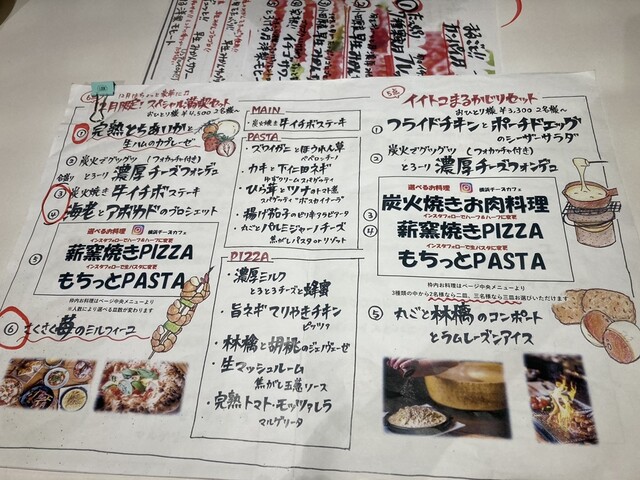 12月はちょっと豪華に♬
12月限定!スペシャル満喫セット
おひとり様 ¥4,500 2名様〜
① 完熟とちあいかと
生ハムのカプレーゼ
② 炭火でグツグツ (フォカッチャ付き)
とろーり 濃厚チーズフォンデュ
③ 炭火焼き 牛イチボステーキ
④ 海老とアボカドのブロシェット
選べるお料理 横浜チーズカフェ
インスタフォローでハーフ&ハーフに変更
⑤ 薪窯焼きPIZZA
インスタフォローで生パスタに変更
もちっとPASTA
枠内お料理はページ中央メニューより
※人数により選べる皿数が変わります
⑥ さくさく苺のミルフィーユ
MAIN
・炭火焼き牛イチボステーキ
PASTA
・ズワイガニとほうれん草
ペペロンチーノ
・カキと下仁田ネギ
ゆずクリームスパゲティ
・ひら茸とツナのトマト煮
スパゲティ"ボスカイオーラ"
・揚げ茄子のピリ辛アラビアータ
・丸ごとパルミジャーノチーズ
焦がしパスタorリゾット
PIZZA
・濃厚ミルク
とろとろチーズと蜂蜜
・旨ネギマリやきチキン
ピッツァ
・林檎と胡桃のジェノヴェーゼ
・生マッシュルーム
焦がし玉葱ソース
・完熟トマト・モッツァレラ
マルゲリータ
イイトコまるかじりセット
おひとり様 ¥3,300 2名様〜
① フライドチキンとポーチドエッグ
のシーザーサラダ
② 炭火でグツグツ (フォカッチャ付き)
とろーり 濃厚チーズフォンデュ
選べるお料理 横浜チーズカフェ
③ 炭火焼きお肉料理
インスタフォローでハーフ&ハーフに変更
④ 薪窯焼きPIZZA
インスタフォローで生パスタに変更
もちっとPASTA
枠内お料理はページ中央メニューより
3種類の中から2名様なら二皿、三名様なら三皿お選びいただけます
⑤ 丸ごと林檎のコンポート
とラムレーズンアイス